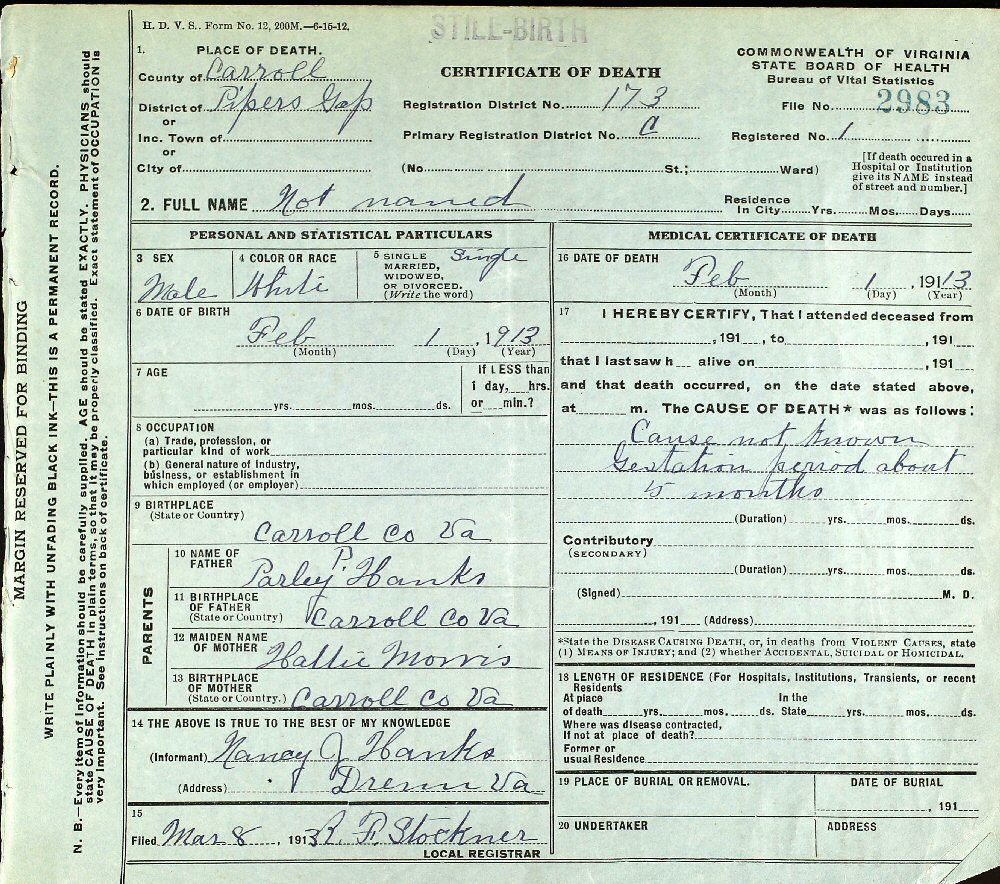 H. D. V. S.. Form No. 12, 200M.—6-15-12.
STILL-BIRTH
1. PLACE OF DEATH.
County of Carroll
District of Pipers Gap
or
Inc. Town of
or
City of
CERTIFICATE OF DEATH
Registration District No. 173
Primary Registration District No. C
(No. St.; Ward)
COMMONWEALTH OF VIRGINIA
STATE BOARD OF HEALTH
Bureau of Vital Statistics
File No. 2983
Registered No. 1
[If death occured in a
Hospital or Institution
give its NAME instead
of street and number.]
2. FULL NAME Not named
Residence
In City Yrs. Mos. Days
PERSONAL AND STATISTICAL PARTICULARS
3 SEX
Male
4 COLOR OR RACE
White
5 SINGLE
MARRIED,
WIDOWED,
OR DIVORCED.
(Write the word)
Single
6 DATE OF BIRTH
Feb 1, 1913
(Month) (Day) (Year)
7 AGE
yrs. mos. ds.
If LESS than
1 day, hrs.
or min.?
8 OCCUPATION
(a) Trade, profession, or
particular kind of work
(b) General nature of industry,
business, or establishment in
which employed (or employer)
9 BIRTHPLACE
(State or Country)
Carroll Co Va
PARENTS
10 NAME OF
FATHER
Parley P. Hanks
11 BIRTHPLACE
OF FATHER
(State or Country)
Carroll Co Va
12 MAIDEN NAME
OF MOTHER
Hallie Morris
13 BIRTHPLACE
OF MOTHER
(State or Country.)
Carroll Co Va
14 THE ABOVE IS TRUE TO THE BEST OF MY KNOWLEDGE
(Informant) Nancy J Hanks
(Address) Drenn Va
15
Filed Mar 8, 1913 R. F. Stockner
LOCAL REGISTRAR
MEDICAL CERTIFICATE OF DEATH
16 DATE OF DEATH
Feb 1, 1913
(Month) (Day) (Year)
17 I HEREBY CERTIFY, That I attended deceased from
, 191 , to , 191
that I last saw h alive on , 191
and that death occurred, on the date stated above,
at m. The CAUSE OF DEATH* was as follows:
Cause not known
Gestation period about
5 months
(Duration) yrs. mos. ds.
Contributory
(SECONDARY)
(Duration) yrs. mos. ds.
(Signed) M. D.
, 191 (Address)
*State the DISEASE CAUSING DEATH, or, in deaths from VIOLENT CAUSES, state
(1) MEANS OF INJURY; and (2) whether ACCIDENTAL, SUICIDAL or HOMICIDAL.
18 LENGTH OF RESIDENCE (For Hospitals, Institutions, Transients, or recent
Residents
At place In the
of death yrs. mos. ds. State yrs. mos. ds.
Where was disease contracted,
if not at place of death?
Former or
usual Residence
19 PLACE OF BURIAL OR REMOVAL.
DATE OF BURIAL
, 191
20 UNDERTAKER
ADDRESS
MARGIN RESERVED FOR BINDING
WRITE PLAINLY WITH UNFADING BLACK INK—THIS IS A PERMANENT RECORD.
N. B.—Every item of information should be carefully supplied. AGE should be stated EXACTLY. PHYSICIANS should
state CAUSE OF DEATH in plain terms, so that it may be properly classified. Exact statement of OCCUPATION is
very important. See instructions on back of certificate.